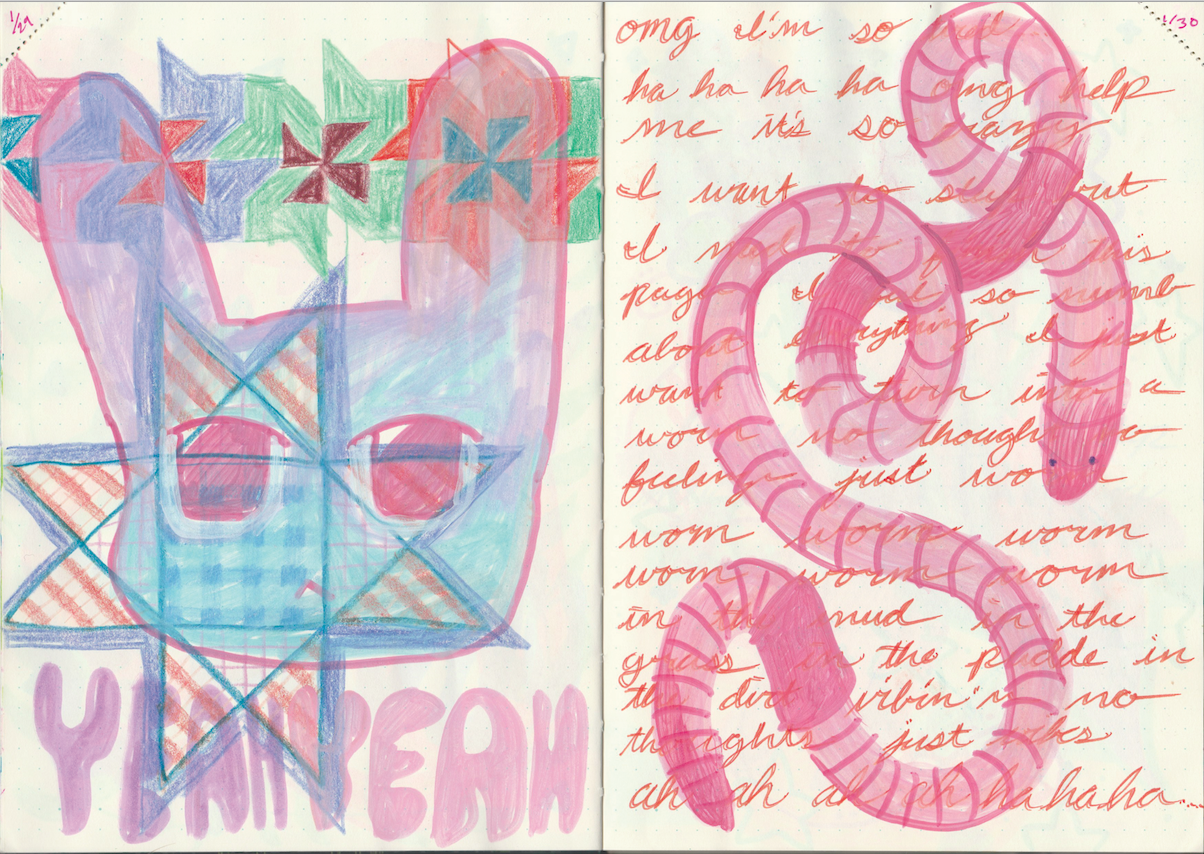 1/29
YEAH YEAH
1/30
omg I'm so
ha ha ha ha omg help
me it's so many
I want to out
I need to this
page I so numb
about everything I just
want to turn into a
worm no though no
feeling just wo
wom worm worm
worm worm worm
in the mud in the
grass in the pudde in
the dirt vibin' no
thoughts just vibes
ah ah ah ah ha ha ha....